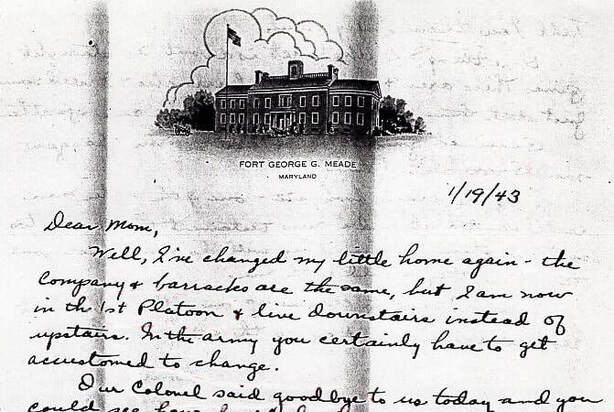 FORT GEORGE G. MEADE
MARYLAND
1/19/43
Dear Mom,
Well, I've changed my little home again - the
company & barracks are the same, but I am now
in th 1st Platoon & live downstairs instead of
upstairs. In the army you certainly have to get
accustomed to change.
Our Colonel said goodbye to us today and you
could see how